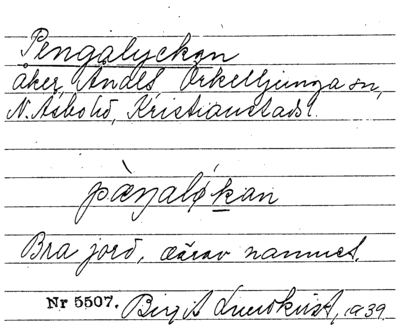 Pengalyckan
åker, Åndes, Örkelljunga sn,
N. Åsbo hd, Kristianstads l.
pàŋaløkan
Bra jord, därav namnet.
Nr 5507. Birgit Lundkvist, 1939.